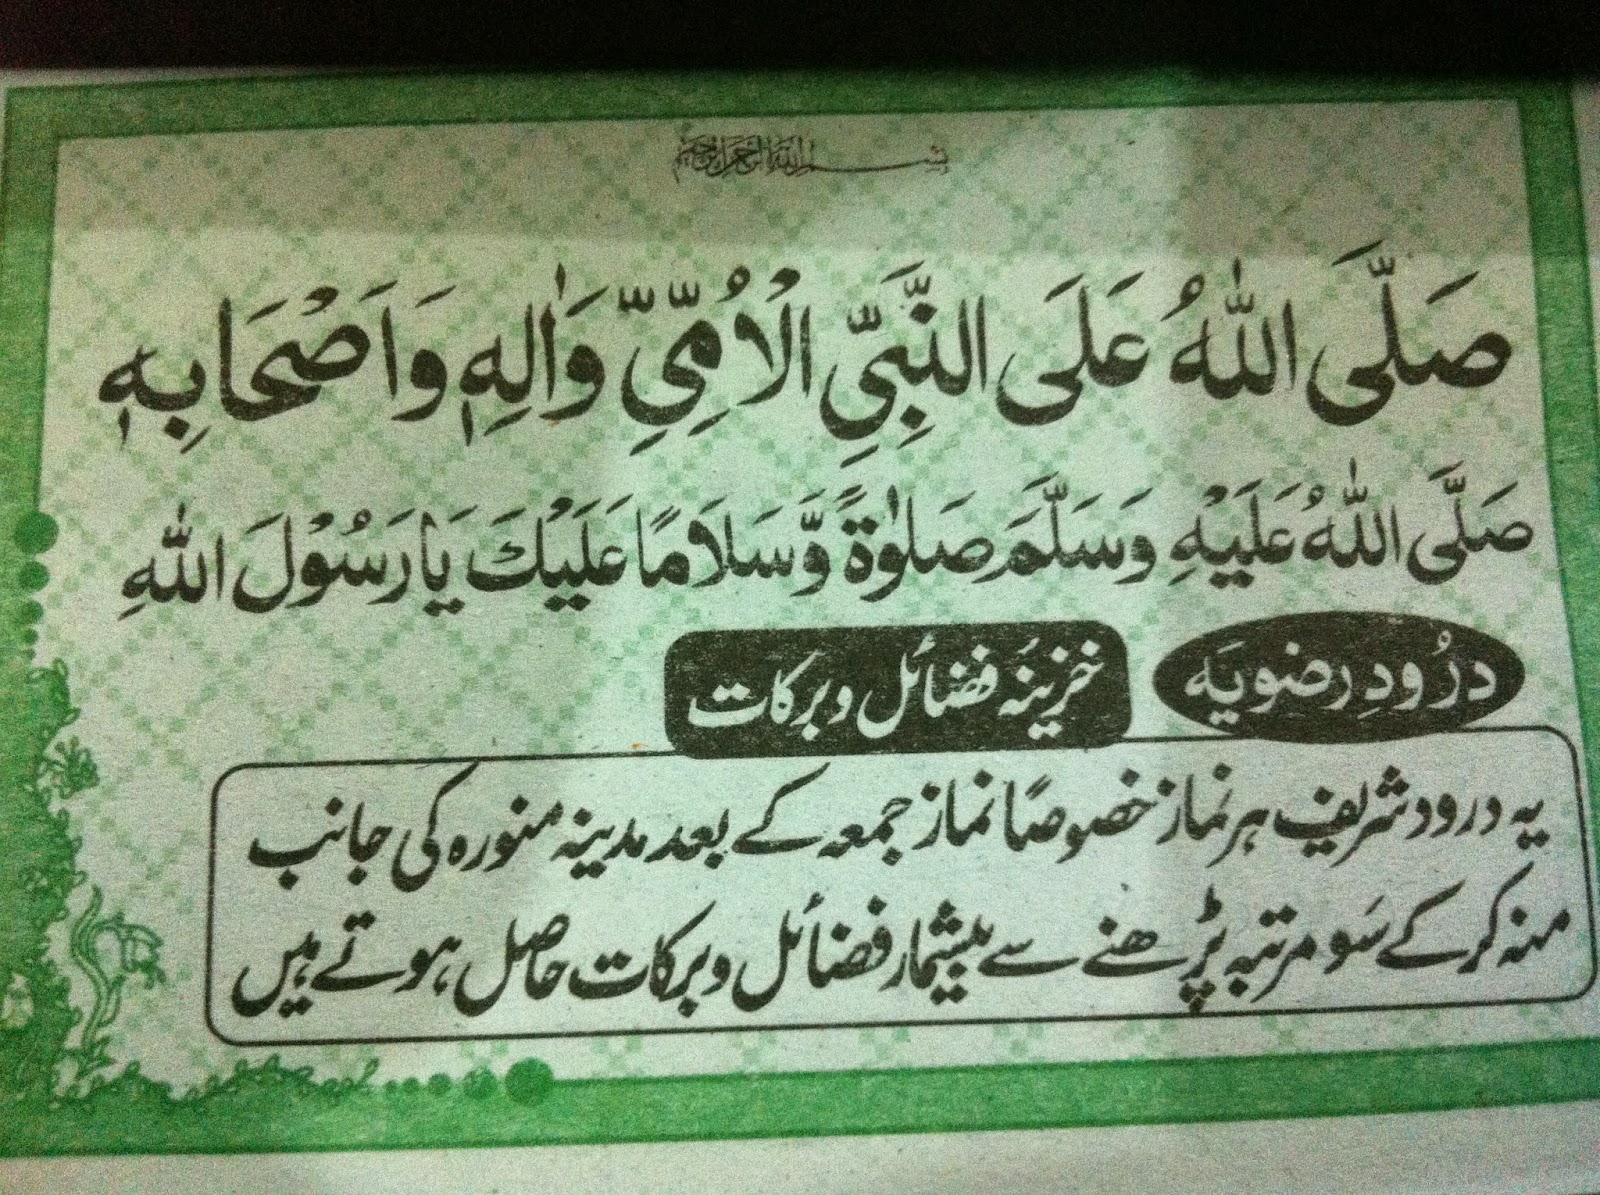 بسم الله الرحمن الرحيم
صَلَّی اللّٰہُ عَلَی النَّبِیِّ الْاُمِّیِّ وَاٰلِہٖ وَاَصْحَابِہٖ
صَلَّی اللّٰہُ عَلَیْہِ وَسَلَّمَ صَلٰوۃً وَّسَلَامًا عَلَیْکَ یَا رَسُوْلَ اللّٰہِ
درُودِ رضویَہ
خزینۂ فضائل و برکات
یہ درود شریف ہر نماز خصوصًا نماز جمعہ کے بعد مدینہ منورہ کی جانب
منہ کر کے سَو مرتبہ پڑھنے سے بیشمار فضائل و برکات حاصل ہوتے ہیں